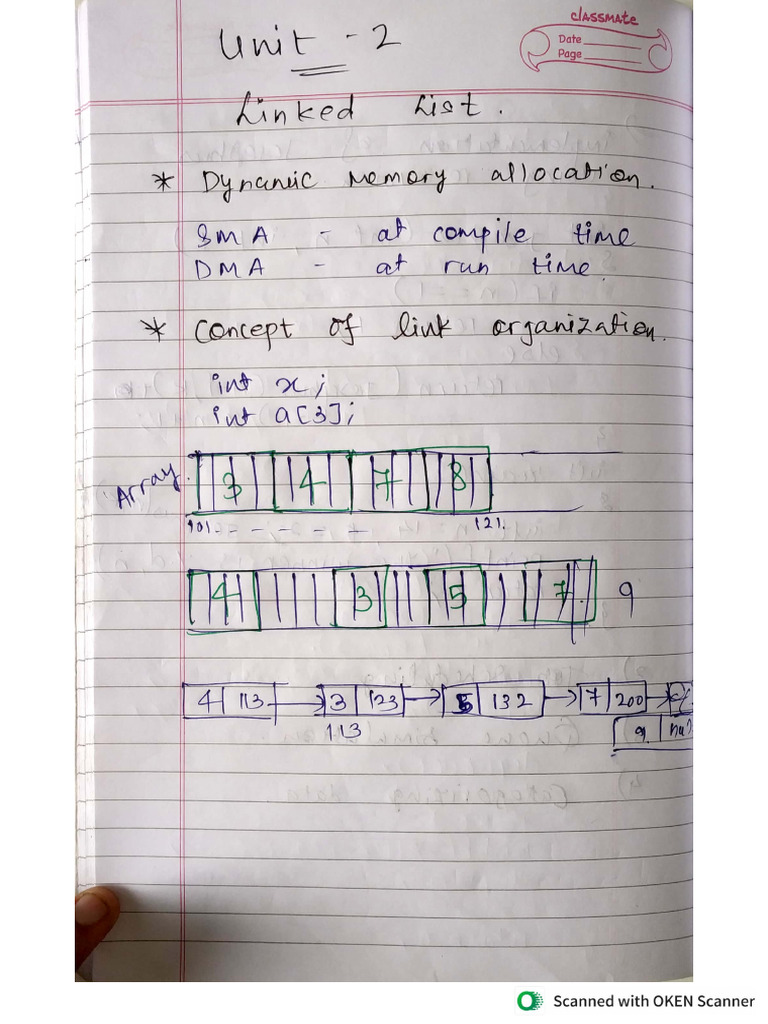 classmate
Date
Page
Unit - 2
Linked List.
* Dynamic Memory allocation.
SMA - at compile time
DMA - at run time.
* Concept of link organization.
int x;
int a[3];
Array.
3 4 7 8
101. - - - - - 121.
4 3 5 7 9
4 113 → 3 123 → 5 132 → 7 200 →
113
9
Scanned with OKEN Scanner